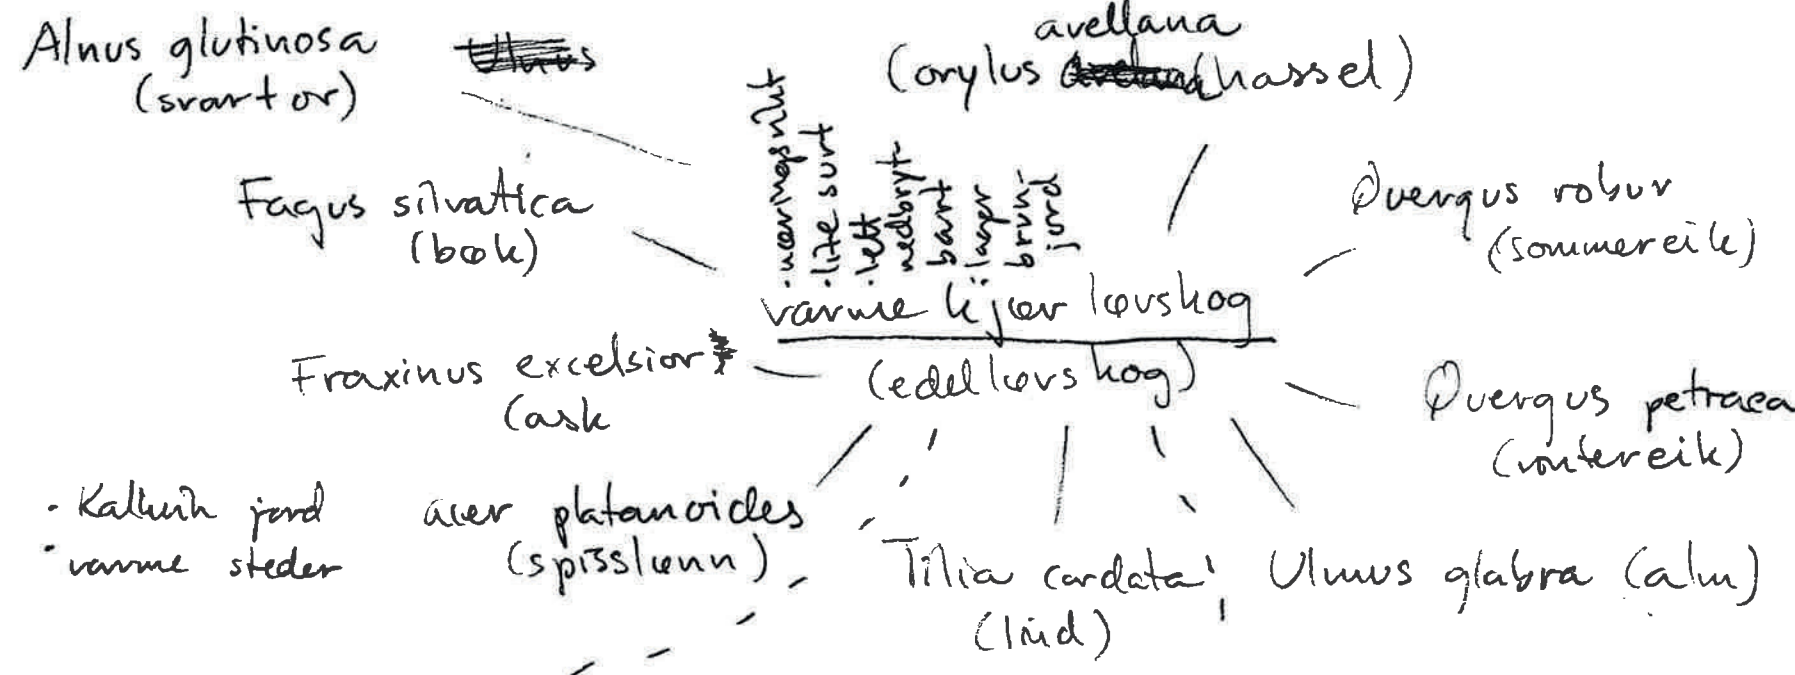 Alnus glutinosa
(svartor)
avellana
Corylus (hassel)
Fagus silvatica
(bøk)
• næringsrikt
• lite surt
• lett
nedbryt-
bart
: lager
brun-
jord
Quergus robur
(sommereik)
varmekjær løvskog
(edelløvskog)
Fraxinus excelsior
(ask
Quergus petraea
(vintereik)
• Kalkrik jord
• varme steder
acer platanoides
(spisslønn)
Tilia cordata
(lind)
Ulmus glabra (alm)